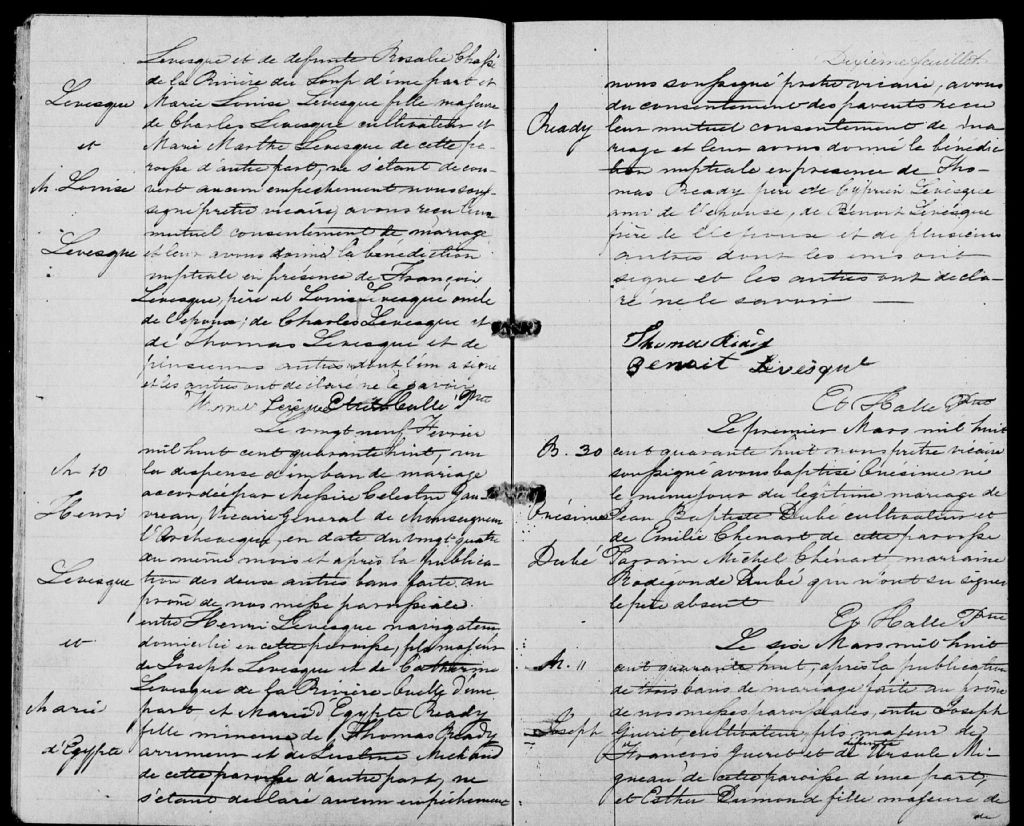 Levesque et de defunte Rosalie Chassé
de la Rivière du Loup d'une part et
Levesque
Marie Louise Levesque fille majeure
de Charles Levesque cultivateur et
et
Marie Marthe Levesque de cette pa-
roisse d'autre part, ne s'étant decou-
M. Louise
vert aucun empêchement nous sous-
signé prêtre vicaire, avons reçu leur
mutuel consentement de mariage
Levesque
et leur avons donné la bénédiction
nuptiale en présence de François
Levesque, père et Louis Levesque oncle
de l'epoux; de Charles Levesque et
de Thomas Levesque et de
plusieurs autres dont l'un a signé
et les autres ont declaré ne le savoir
Et Hallé Ptre
Le vingt neuf Fevrier
mil huit cent quarante huit, vu
M 10
la dispense d'un ban de mariage
accordée par Messire Celestin Gau-
Henri
vreau, Vicaire General de Monseigneur
l'Archevêque, en date du vingt quatre
du même mois et après la publica-
Levesque
tion des deux autres bans faite au
prône de nos messes paroissiales
entre Henri Levesque navigateur
et
domicilié en cette paroisse, fils majeur
de Joseph Levesque et de Catherine
Levesque de la Rivière-Ouelle d'une
Marie
part et Marie d'Egypte Ready
fille mineure de Thomas Ready
d'Egypte
arrimeur et de Justine Michaud
de cette paroisse d'autre part, ne
s'étant declaré aucun empêchement
Dixième feuillet
nous soussigné prêtre vicaire, avons
du consentement des parents reçu
Ready
leur mutuel consentement de ma-
riage et leur avons donné la bénédic
tion nuptiale en presence de Tho-
mas Ready père et de Cyprien Levesque
ami de l'epouse, de Benoit Levesque
frère de l'Epouse et de plusieurs
autres dont les uns ont
signé et les autres ont decla-
ré ne le savoir
Thomas Redy
Benoit Levesque
Et Hallé Ptre
Le premier Mars mil huit
B. 30
cent quarante huit nous prêtre vicaire
soussigné avons baptisé Onésime né
le même jour du légitime mariage de
Onésime
Jean Baptiste Dubé cultivateur et
de Emilie Chenart de cette paroisse
Dubé
Parrain Michel Chénart, marraine
Radegonde Dubé qui n'ont su signer
le père absent
Et Hallé Ptre
Le six Mars mil huit
M. 11
cent quarante huit, après la publication
de trois bans de mariage faite au prône
de nos messes paroissiales, entre Joseph
Joseph
Gueret cultivateur, fils majeur de
François Gueret et de defunte Ursule Mi-
gneau de cette paroisse d'une part,
et Esther Dumond fille majeure de
de